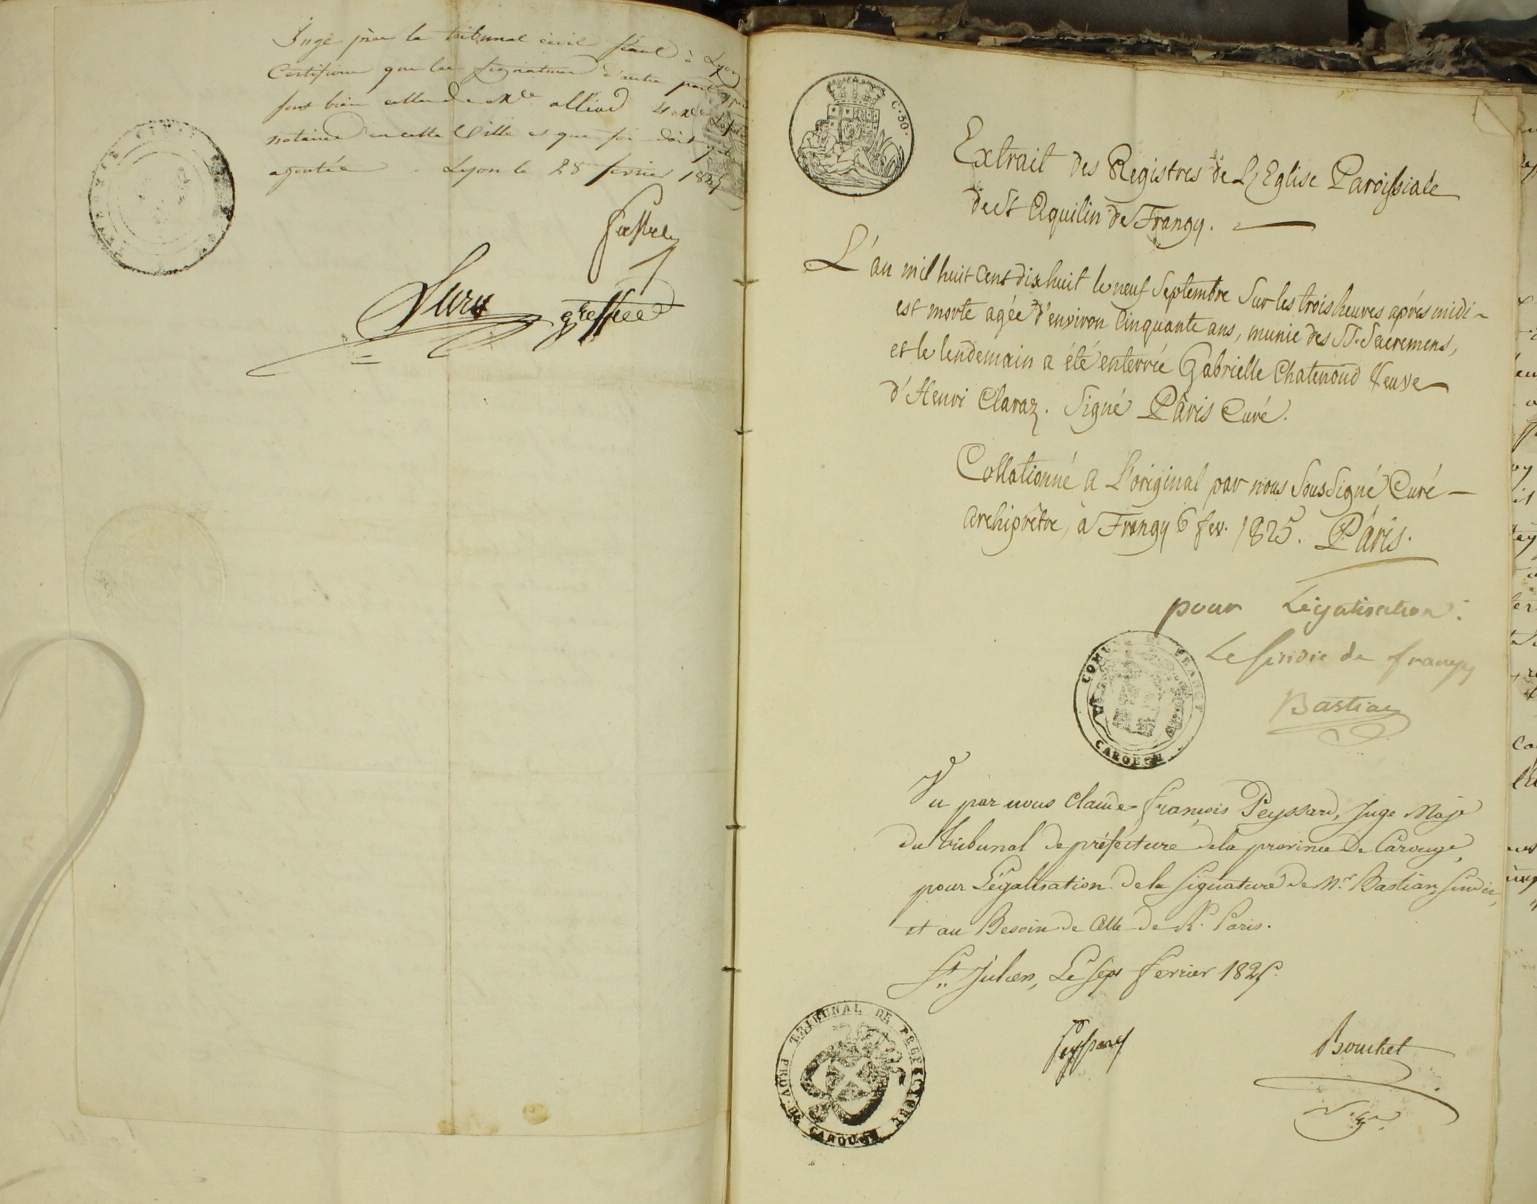 Jugé par le tribunal civil séant à Lyon
Certifions que les signatures d'autre part
sont bien celles de Me alliod & Me
notaires en cette Ville et que foi doit y être
ajoutée. Lyon le 25 fevrier 1825
greffier
C. 50.
Extrait des Registres de L'Eglise Paroissiale
de St Aquilin de Frangy.
L'an mil huit Cent dix huit le neuf Septembre Sur les trois heures après midi
est morte agée d'environ Cinquante ans, munie des SS. Sacremens,
et le lendemain a été enterrée Gabrielle Chatenoud Veuve
d'Henri Claraz. Signé Pâris Curé.
Collationné a L'original par nous Soussigné Curé
Archiprêtre, à Frangy 6 fev. 1825. Pâris.
pour Légalisation:
Le sindic de frangy
Bastian
COMUNE DE FRANGY
CAROUGE
Vu par nous Claude François Peyssard, Juge Maje
du tribunal de préfecture de la province de Carouge,
pour Légalisation de la signature de Mr. Bastian Sindic,
et au Besoin de Celle de R. Paris.
St. Julien, Le sept fevrier 1825.
Peyssard
Bouchet
TRIBUNAL DE PREFECTURE
PROV. DE CAROUGE